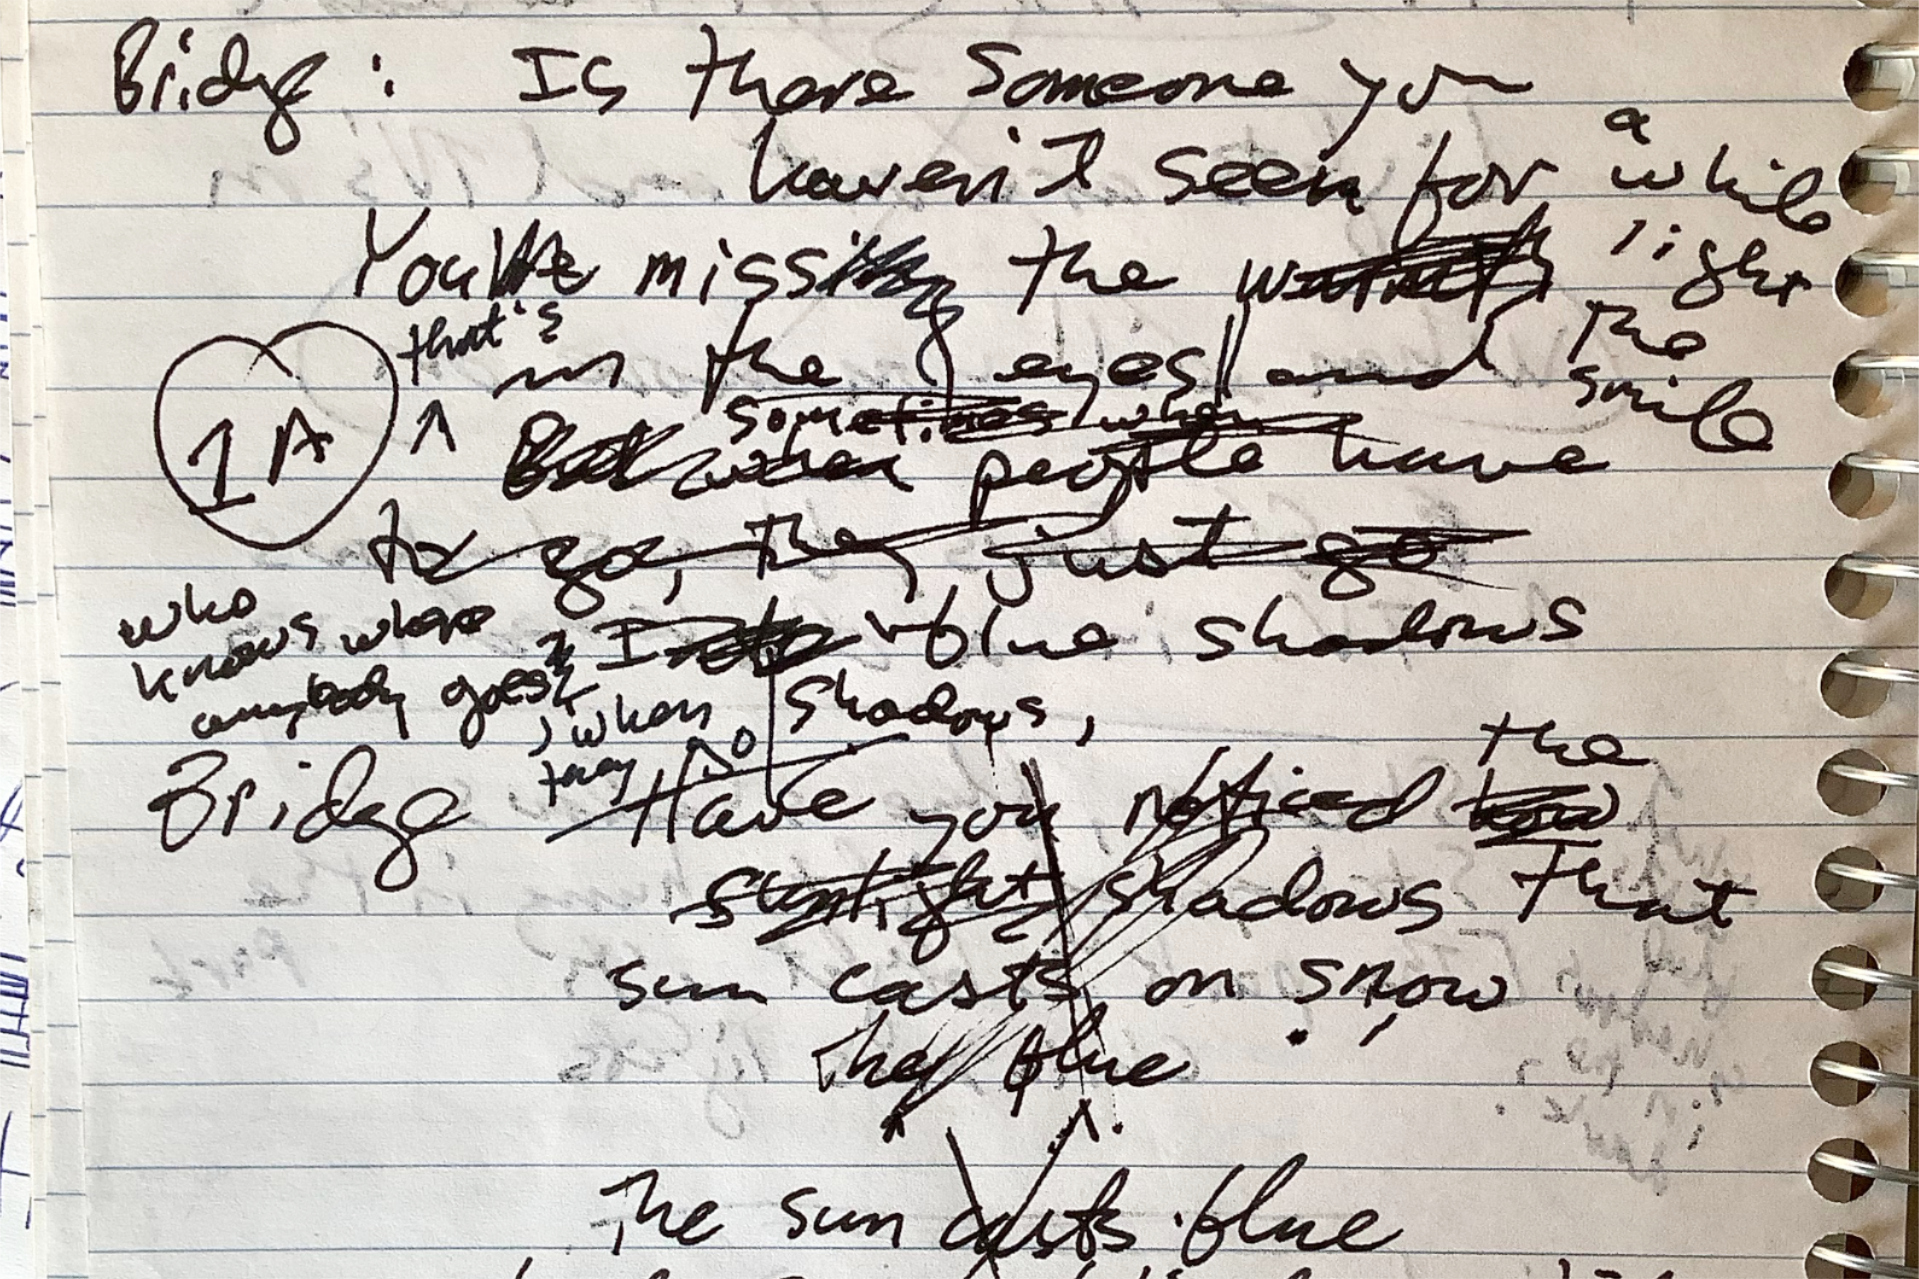 Bridge: Is there someone you
haven't seen for a while
You miss the light
that's in the eyes and the smile
1A
sometimes when
But when people have
to go, they just go
who
knows where
anybody goes
, when
they go
Into blue shadows
shadows,
Bridge Have you noticed how the
sunlight shadows that
sun casts on snow
They blue
The sun casts blue